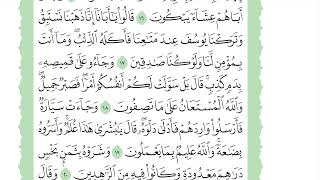 أَبَاهُمْ عِشَآءً يَبْكُونَ ١٦ قَالُوا۟ يَٰٓأَبَانَآ إِنَّا ذَهَبْنَا نَسْتَبِقُ
وَتَرَكْنَا يُوسُفَ عِندَ مَتَٰعِنَا فَأَكَلَهُ ٱلذِّئْبُ وَمَآ أَنتَ
بِمُؤْمِنٍ لَّنَا وَلَوْ كُنَّا صَٰدِقِينَ ١٧ وَجَآءُو عَلَىٰ قَمِيصِهِۦ
بِدَمٍ كَذِبٍ قَالَ بَلْ سَوَّلَتْ لَكُمْ أَنفُسُكُمْ أَمْرًا فَصَبْرٌ جَمِيلٌ
وَٱللَّهُ ٱلْمُسْتَعَانُ عَلَىٰ مَا تَصِفُونَ ١٨ وَجَآءَتْ سَيَّارَةٌ
فَأَرْسَلُوا۟ وَارِدَهُمْ فَأَدْلَىٰ دَلْوَهُۥ قَالَ يَٰبُشْرَىٰ هَٰذَا غُلَٰمٌ وَأَسَرُّوهُ
بِضَٰعَةً وَٱللَّهُ عَلِيمٌۢ بِمَا يَعْمَلُونَ ١٩ وَشَرَوْهُ بِثَمَنٍۭ بَخْسٍ
دَرَٰهِمَ مَعْدُودَةٍ وَكَانُوا۟ فِيهِ مِنَ ٱلزَّٰهِدِينَ ٢٠ وَقَالَ